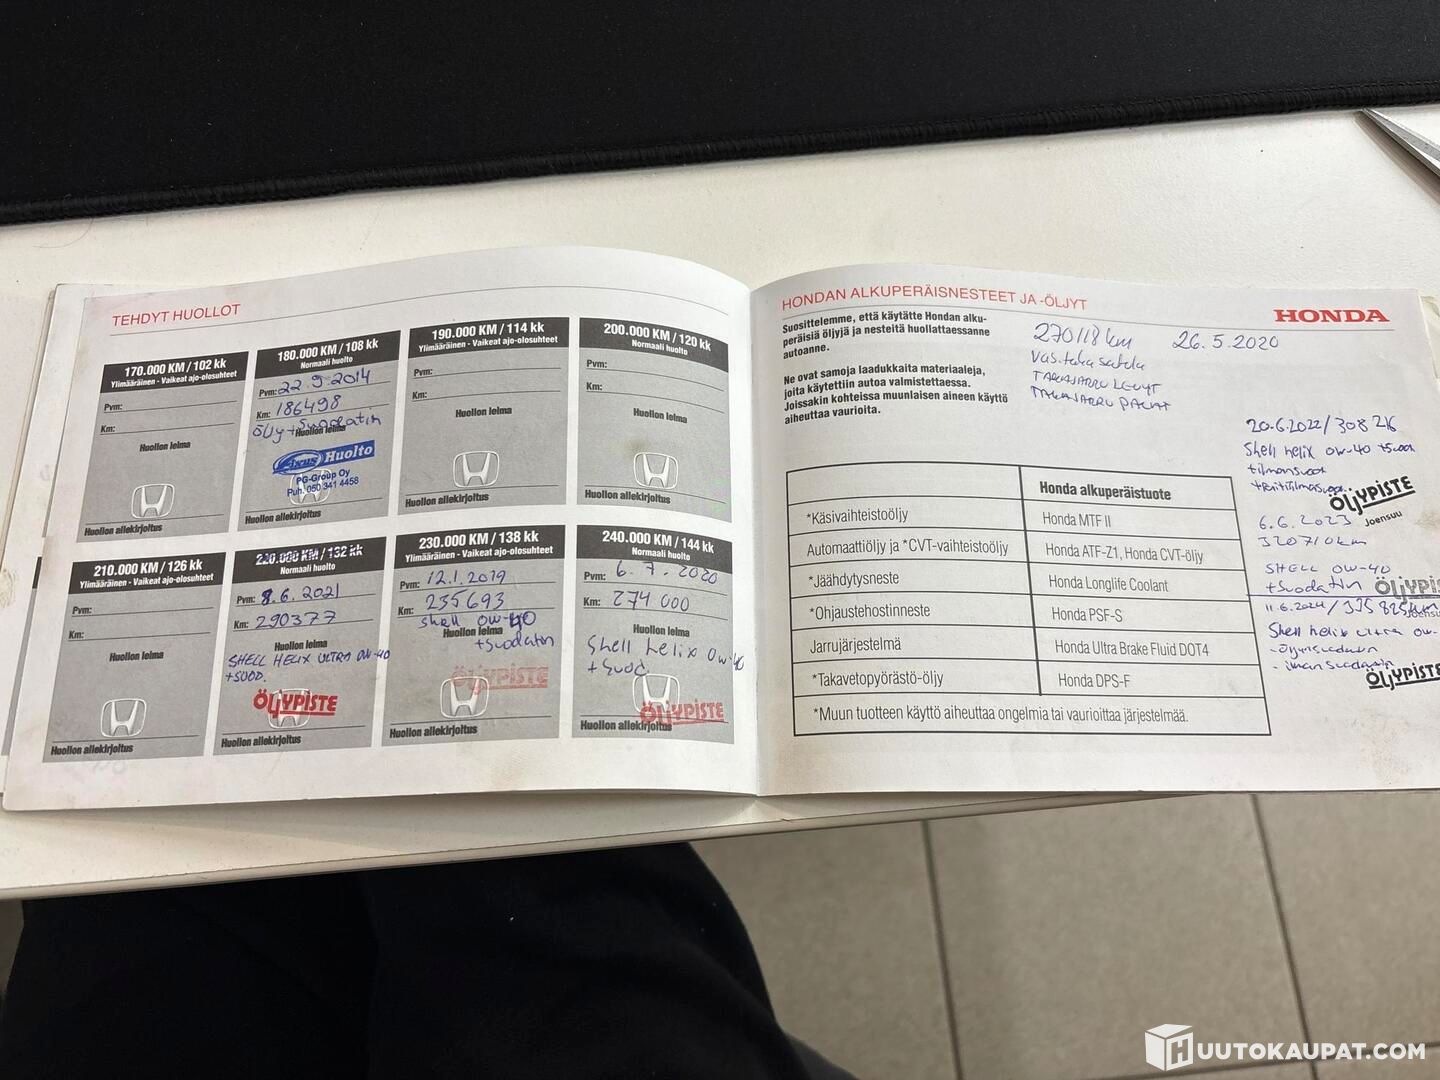 TEHDYT HUOLLOT
170.000 KM / 102 kk
Ylimääräinen - Vaikeat ajo-olosuhteet
Pvm:
Km:
Huollon leima
Huollon allekirjoitus
180.000 KM / 108 kk
Normaali huolto
Pvm: 22.9.2014
Km: 186498
Öljy + Suodatin
Huollon leima
Huolto
PG-Group Oy
Puh. 050 341 4458
Huollon allekirjoitus
190.000 KM / 114 kk
Ylimääräinen - Vaikeat ajo-olosuhteet
Pvm:
Km:
Huollon leima
Huollon allekirjoitus
200.000 KM / 120 kk
Normaali huolto
Pvm:
Km:
Huollon leima
Huollon allekirjoitus
210.000 KM / 126 kk
Ylimääräinen - Vaikeat ajo-olosuhteet
Pvm:
Km:
Huollon leima
Huollon allekirjoitus
220.000 KM / 132 kk
Normaali huolto
Pvm: 8.6.2021
Km: 290377
Huollon leima
SHELL HELIX ULTRA 0W-40
+SUOD.
ÖLJYPISTE
Huollon allekirjoitus
230.000 KM / 138 kk
Ylimääräinen - Vaikeat ajo-olosuhteet
Pvm: 12.1.2019
Km: 235693
Shell 0W-40
Huollon leima
+Suodatin
ÖLJYPISTE
Huollon allekirjoitus
240.000 KM / 144 kk
Normaali huolto
Pvm: 6.7.2020
Km: 274 000
Huollon leima
Shell helix 0W-40
+ Suod.
ÖLJYPISTE
Huollon allekirjoitus
HONDAN ALKUPERÄISNESTEET JA -ÖLJYT
HONDA
Suosittelemme, että käytätte Hondan alku-
peräisiä öljyjä ja nesteitä huollattaessanne
autoanne.
Ne ovat samoja laadukkaita materiaaleja,
joita käytettiin autoa valmistettaessa.
Joissakin kohteissa muunlaisen aineen käyttö
aiheuttaa vaurioita.
270118 km 26.5.2020
Vas. taka satula
TAKAJARRU LEVYT
TAKAJARRU PALAT
Honda alkuperäistuote
*Käsivaihteistoöljy Honda MTF II
Automaattiöljy ja *CVT-vaihteistoöljy Honda ATF-Z1, Honda CVT-öljy
*Jäähdytysneste Honda Longlife Coolant
*Ohjaustehostinneste Honda PSF-S
Jarrujärjestelmä Honda Ultra Brake Fluid DOT4
*Takavetopyörästö-öljy Honda DPS-F
*Muun tuotteen käyttö aiheuttaa ongelmia tai vaurioittaa järjestelmää.
20.6.2022 / 308 216
Shell helix 0W-40 + Suod
+ilmansuod
+raitisilmasuod.
ÖLJYPISTE
Joensuu
6.6.2023
320710km
SHELL 0W-40
+Suodatin
ÖLJYPIS
Joensuu
11.6.2024 / 335 825km
Shell helix Ultra 0W-
- öljynsuodatin
- ilmansuodatin
ÖLJYPISTE
HUUTOKAUPAT.COM